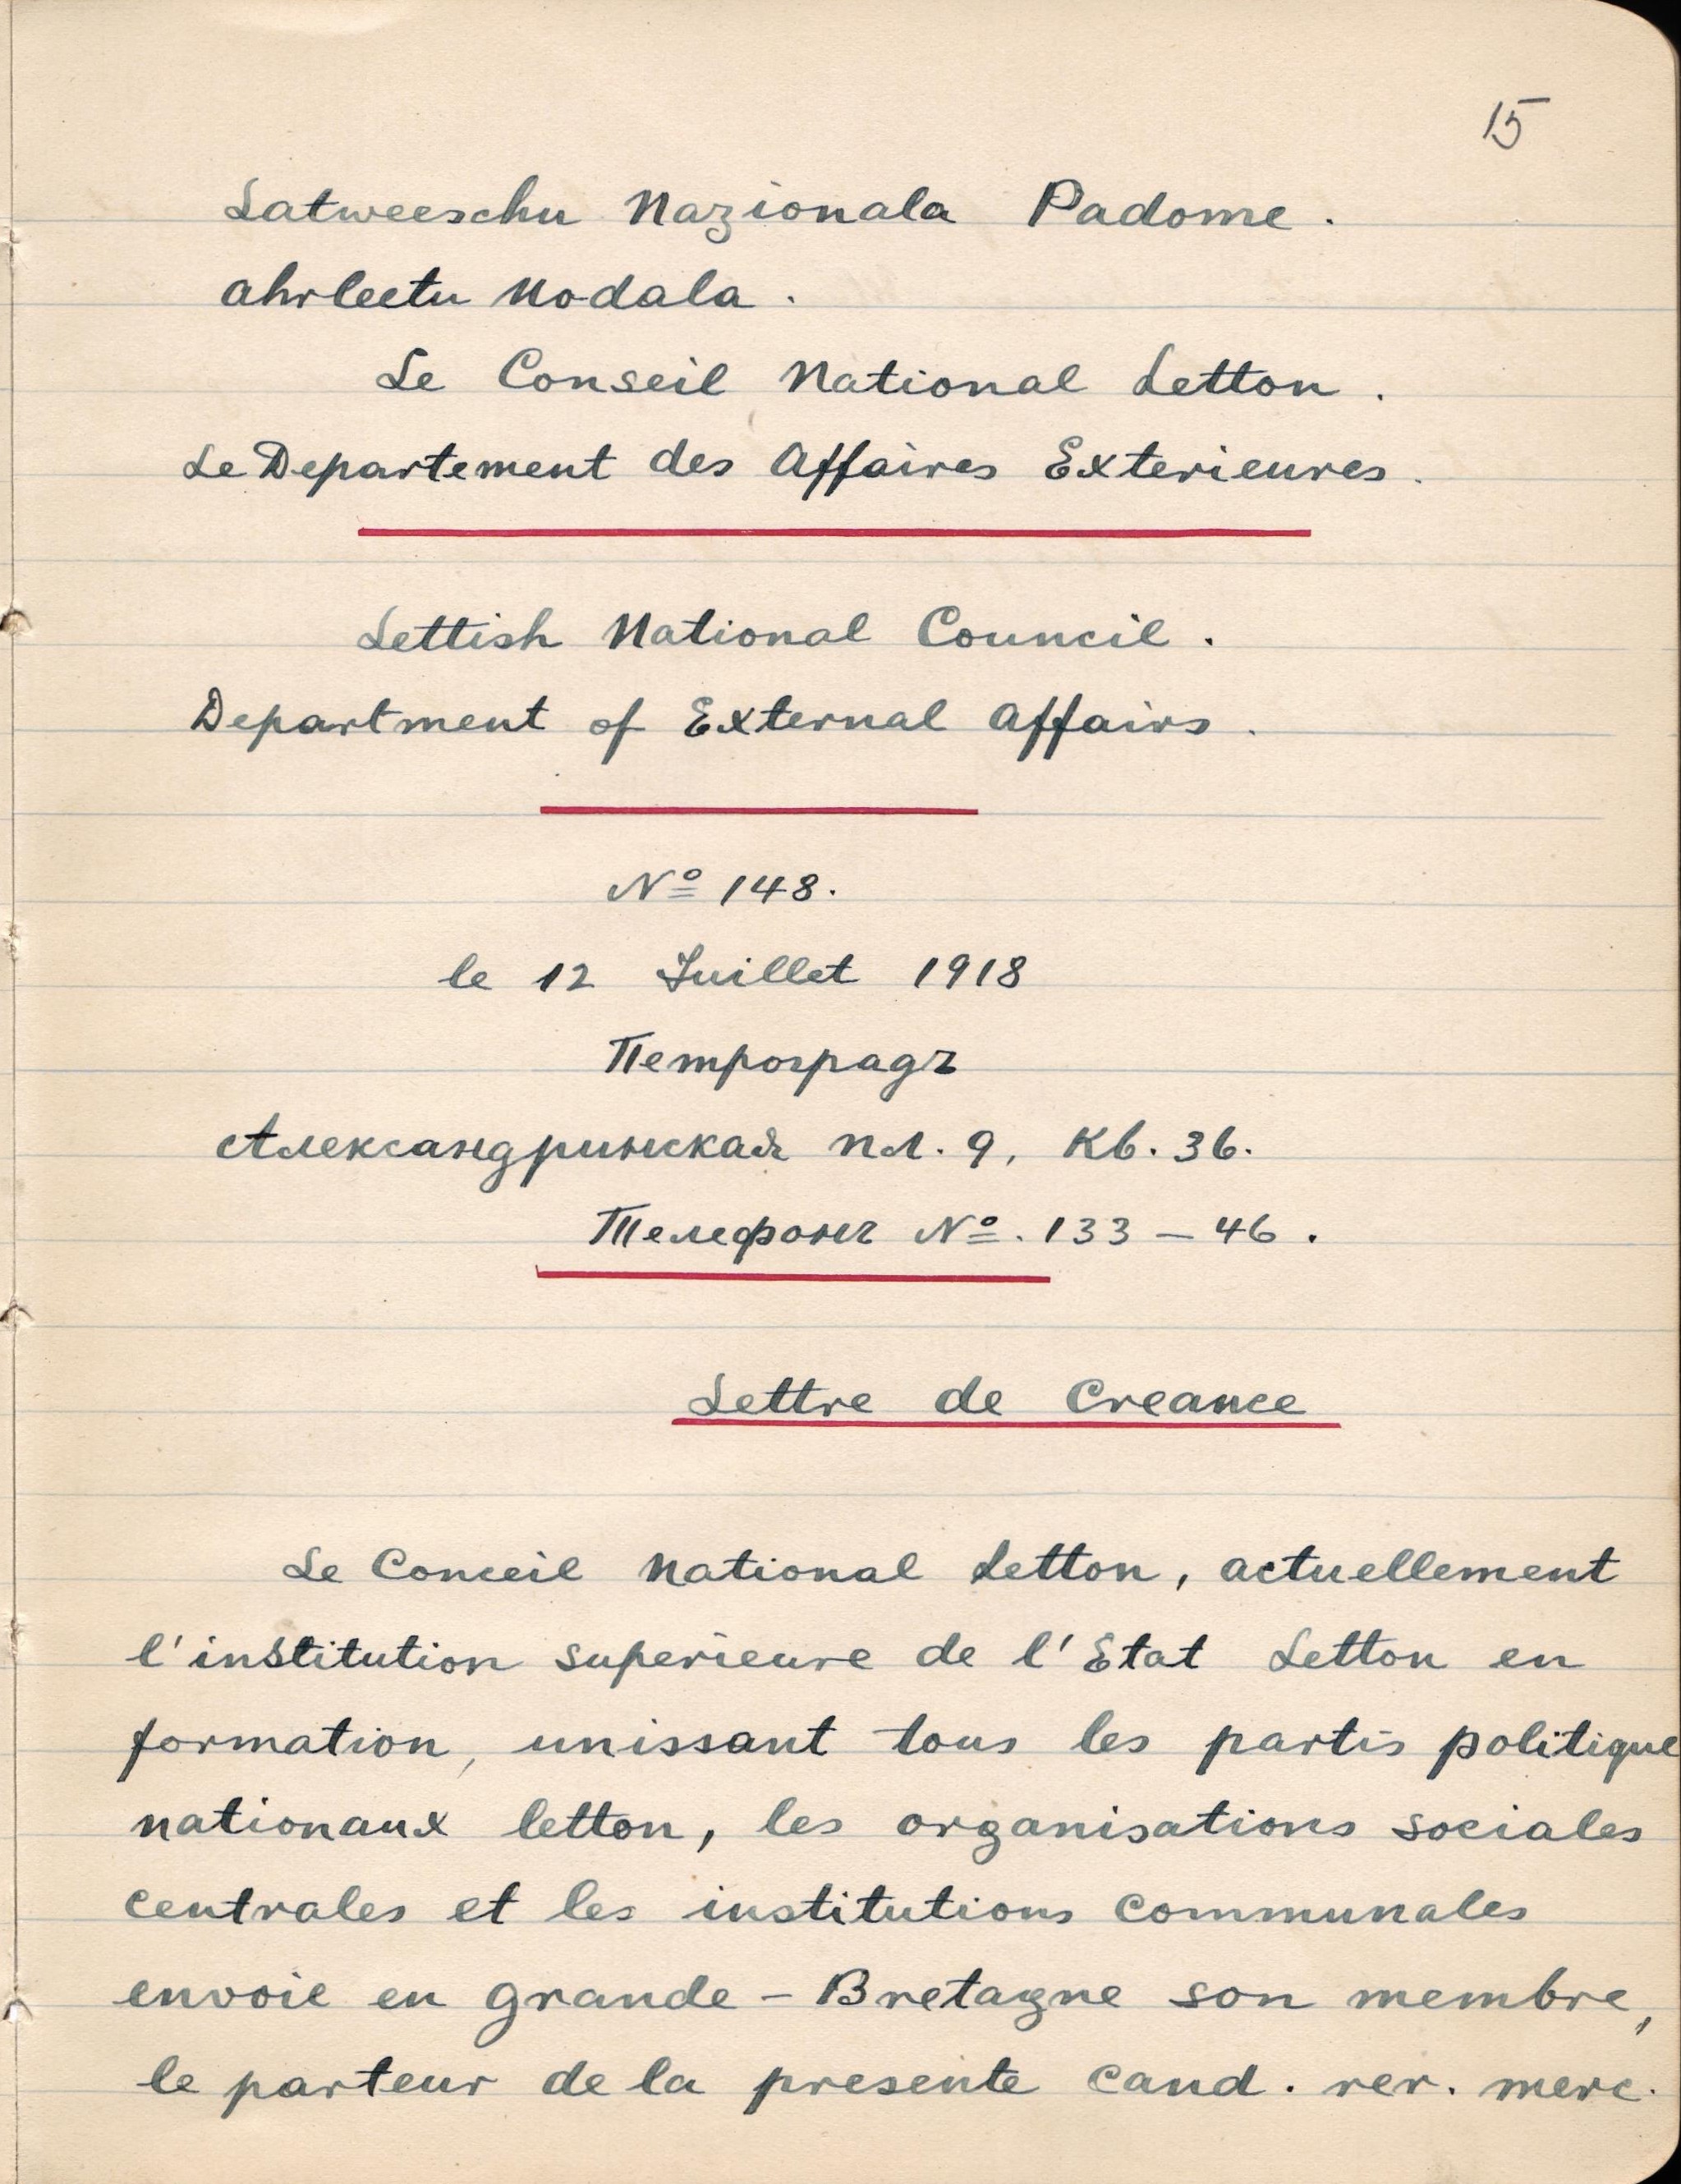 15
Latweeschu Nazionala Padome.
ahrleetu Nodala.
Le Conseil National Letton.
Le Departement des Affaires Exterieures.
Lettish National Council.
Department of External Affairs.
Nº 148.
le 12 Juillet 1918
Петроградъ
Александринская пл. 9, Кв. 36.
Телефонъ Nº. 133 – 46.
Lettre de Creance
Le Conceil National Letton, actuellement
l'institution superieure de l'Etat Letton en
formation, unissant tous les partis politique
nationaux letton, les organisations sociales
centrales et les institutions communales
envoie en Grande – Bretagne son membre,
le parteur de la presente cand. rer. merc.